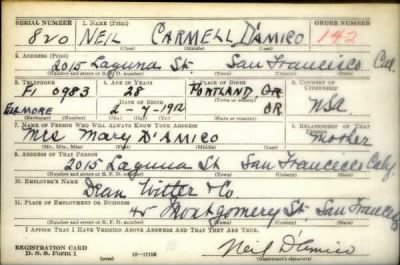 SERIAL NUMBER 1. NAME (Print) ORDER NUMBER
820 NEIL CARMELL D'AMICO 142
(First) (Middle) (Last)
2. ADDRESS (Print)
2015 Laguna St. San Francisco Cal.
(Number and street or R. F. D. number) (Town) (County) (State)
3. TELEPHONE 4. AGE IN YEARS 5. PLACE OF BIRTH 6. COUNTRY OF CITIZENSHIP
FI 0983 28 PORTLAND
DATE OF BIRTH OR
FILLMORE 2-4-1912 USA
(Exchange) (Number) (Mo.) (Day) (Yr.) (State or country)
7. NAME OF PERSON WHO WILL ALWAYS KNOW YOUR ADDRESS 8. RELATIONSHIP OF THAT PERSON
Mrs Mary D'AMICO Mother
(Mr., Mrs., Miss) (First) (Middle) (Last)
9. ADDRESS OF THAT PERSON
2015 Laguna St San Francisco
(Number and street or R. F. D. number) (Town) (County) (State)
10. EMPLOYER'S NAME
Dean Witter & Co
11. PLACE OF EMPLOYMENT OR BUSINESS
45 Montgomery St San Francisco
(Number and street or R. F. D. number) (Town) (County) (State)
I AFFIRM THAT I HAVE VERIFIED ABOVE ANSWERS AND THAT THEY ARE TRUE.
REGISTRATION CARD
D. S. S. Form 1 16-17105 Neil D'Amico